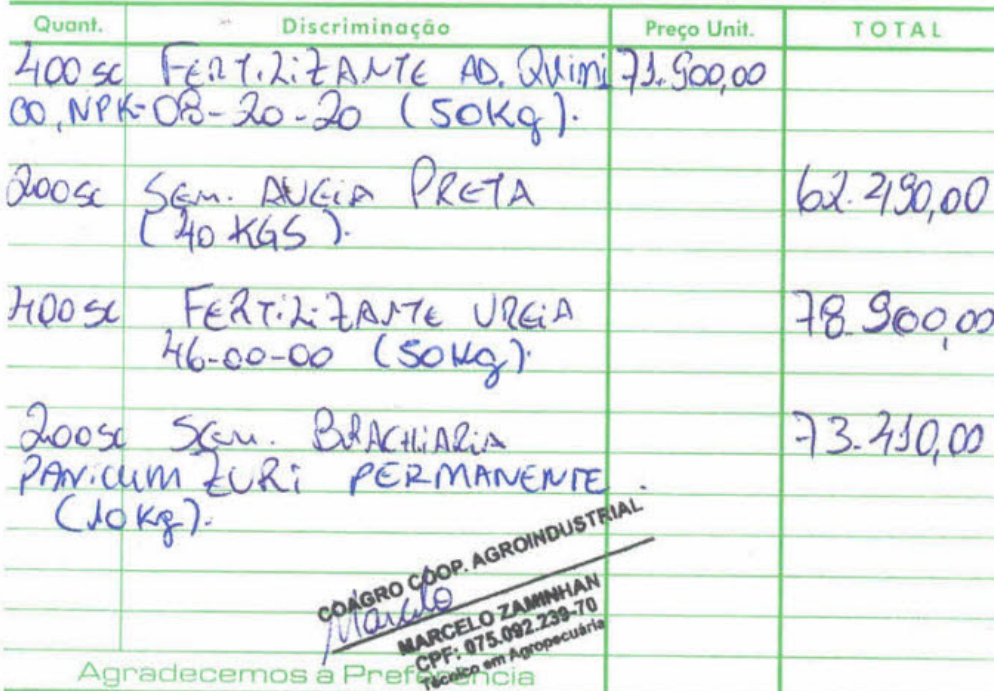 Quant. Discriminação Preço Unit. TOTAL
400 sc FERTILIZANTE AD. Quimi 71.900,00
co, NPK-08-20-20 (50Kg).
200 sc Sem. AVEIA PRETA 62.490,00
(40 KGS).
400 sc FERTILIZANTE UREIA 78.900,00
46-00-00 (50Kg).
200 sc Sem. BRACHIARIA 73.410,00
PANICUM ZURI PERMANENTE.
(10 Kg).
COAGRO COOP. AGROINDUSTRIAL
Marcelo
MARCELO ZAMINHAN
CPF: 075.092.239-70
Técnico em Agropecuária
Agradecemos a Preferência